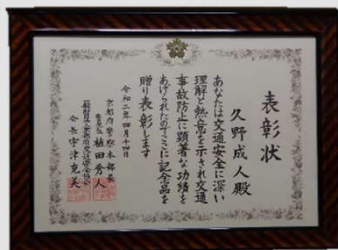 表彰状
久野成人殿
あなたは交通安全に深い
理解と熱意を示され交通
事故防止に顕著な功績を
あげられたのでここに記念品を
贈り表彰します
令和二年四月十四日
京都府警察本部長
植田秀人
会長 宇津克美